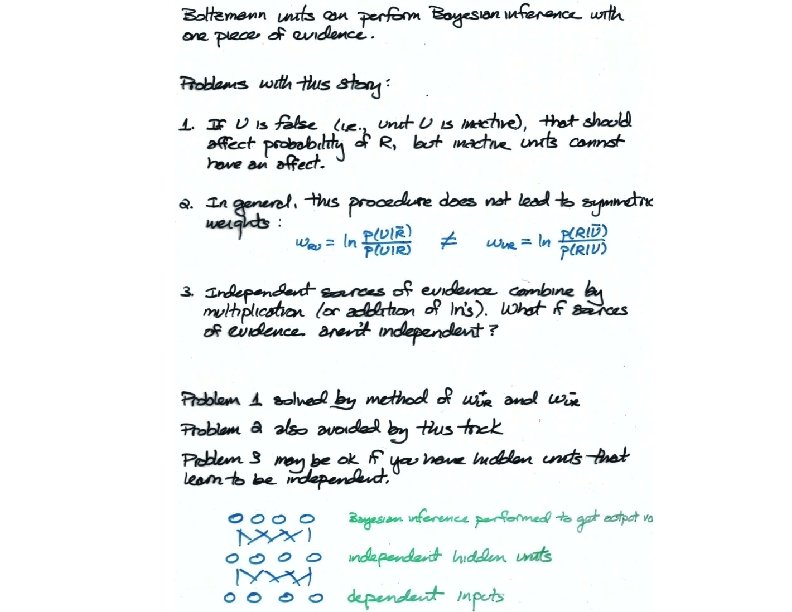 Boltzmann units can perform Bayesian inference with
one piece of evidence.
Problems with this story:
1. If U is false (i.e., unit U is inactive), that should
affect probability of R, but inactive units cannot
have an affect.
2. In general, this procedure does not lead to symmetric
weights:
w_RU = ln P(U|R̄)/P(U|R) ≠ w_UR = ln P(R|Ū)/P(R|U)
3. Independent sources of evidence combine by
multiplication (or addition of ln's). What if sources
of evidence aren't independent?
Problem 1 solved by method of w⁺_UR and w⁻_UR
Problem 2 also avoided by this trick
Problem 3 may be ok if you have hidden units that
learn to be independent.
Bayesian inference performed to get output
independent hidden units
dependent inputs